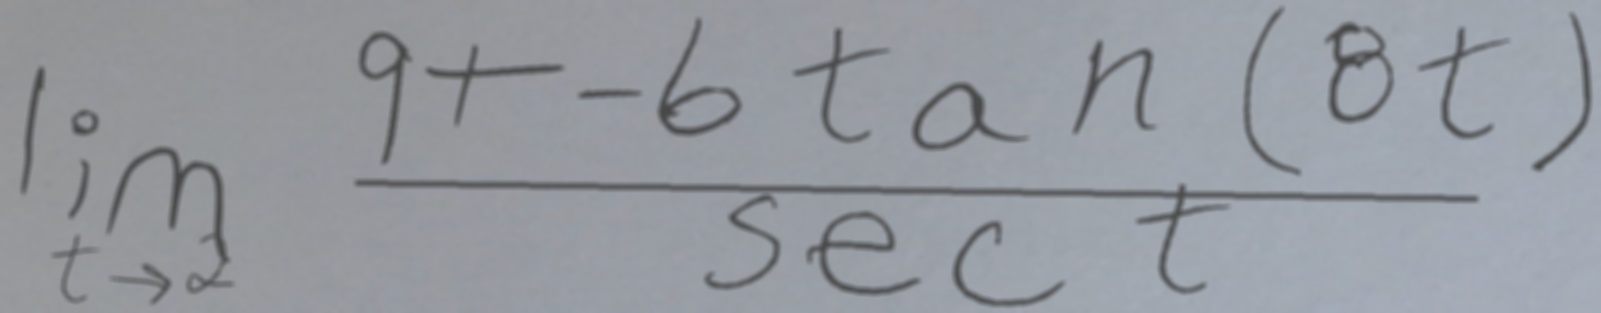 lim t→2 (9+ -6 tan(8t)) / (sec t)